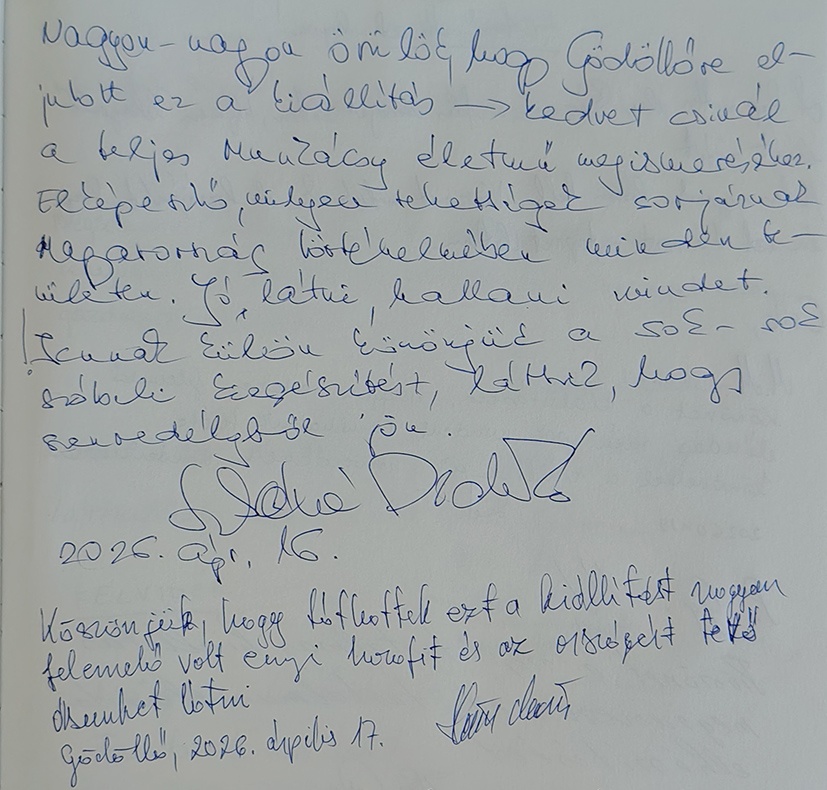 Nagyon-nagyon örülök, hogy Gödöllőre el-
jutott ez a kiállítás → kedvet csinál
a teljes Munkácsy életmű megismeréséhez.
Elképesztő, milyen tehetségek sorjáznak
Magyarország történelmében minden te-
rületen. Jó látni, hallani mindet.
! Icunak külön köszönjük a sok-sok
szóbeli kiegészítést, látszik, hogy
szenvedélyből jön.
2026. ápr. 16.
Köszönjük, hogy láthattuk ezt a kiállítást nagyon
felemelő volt ennyi hazafit és az országért tevő
látni
Gödöllő, 2026. április 17.